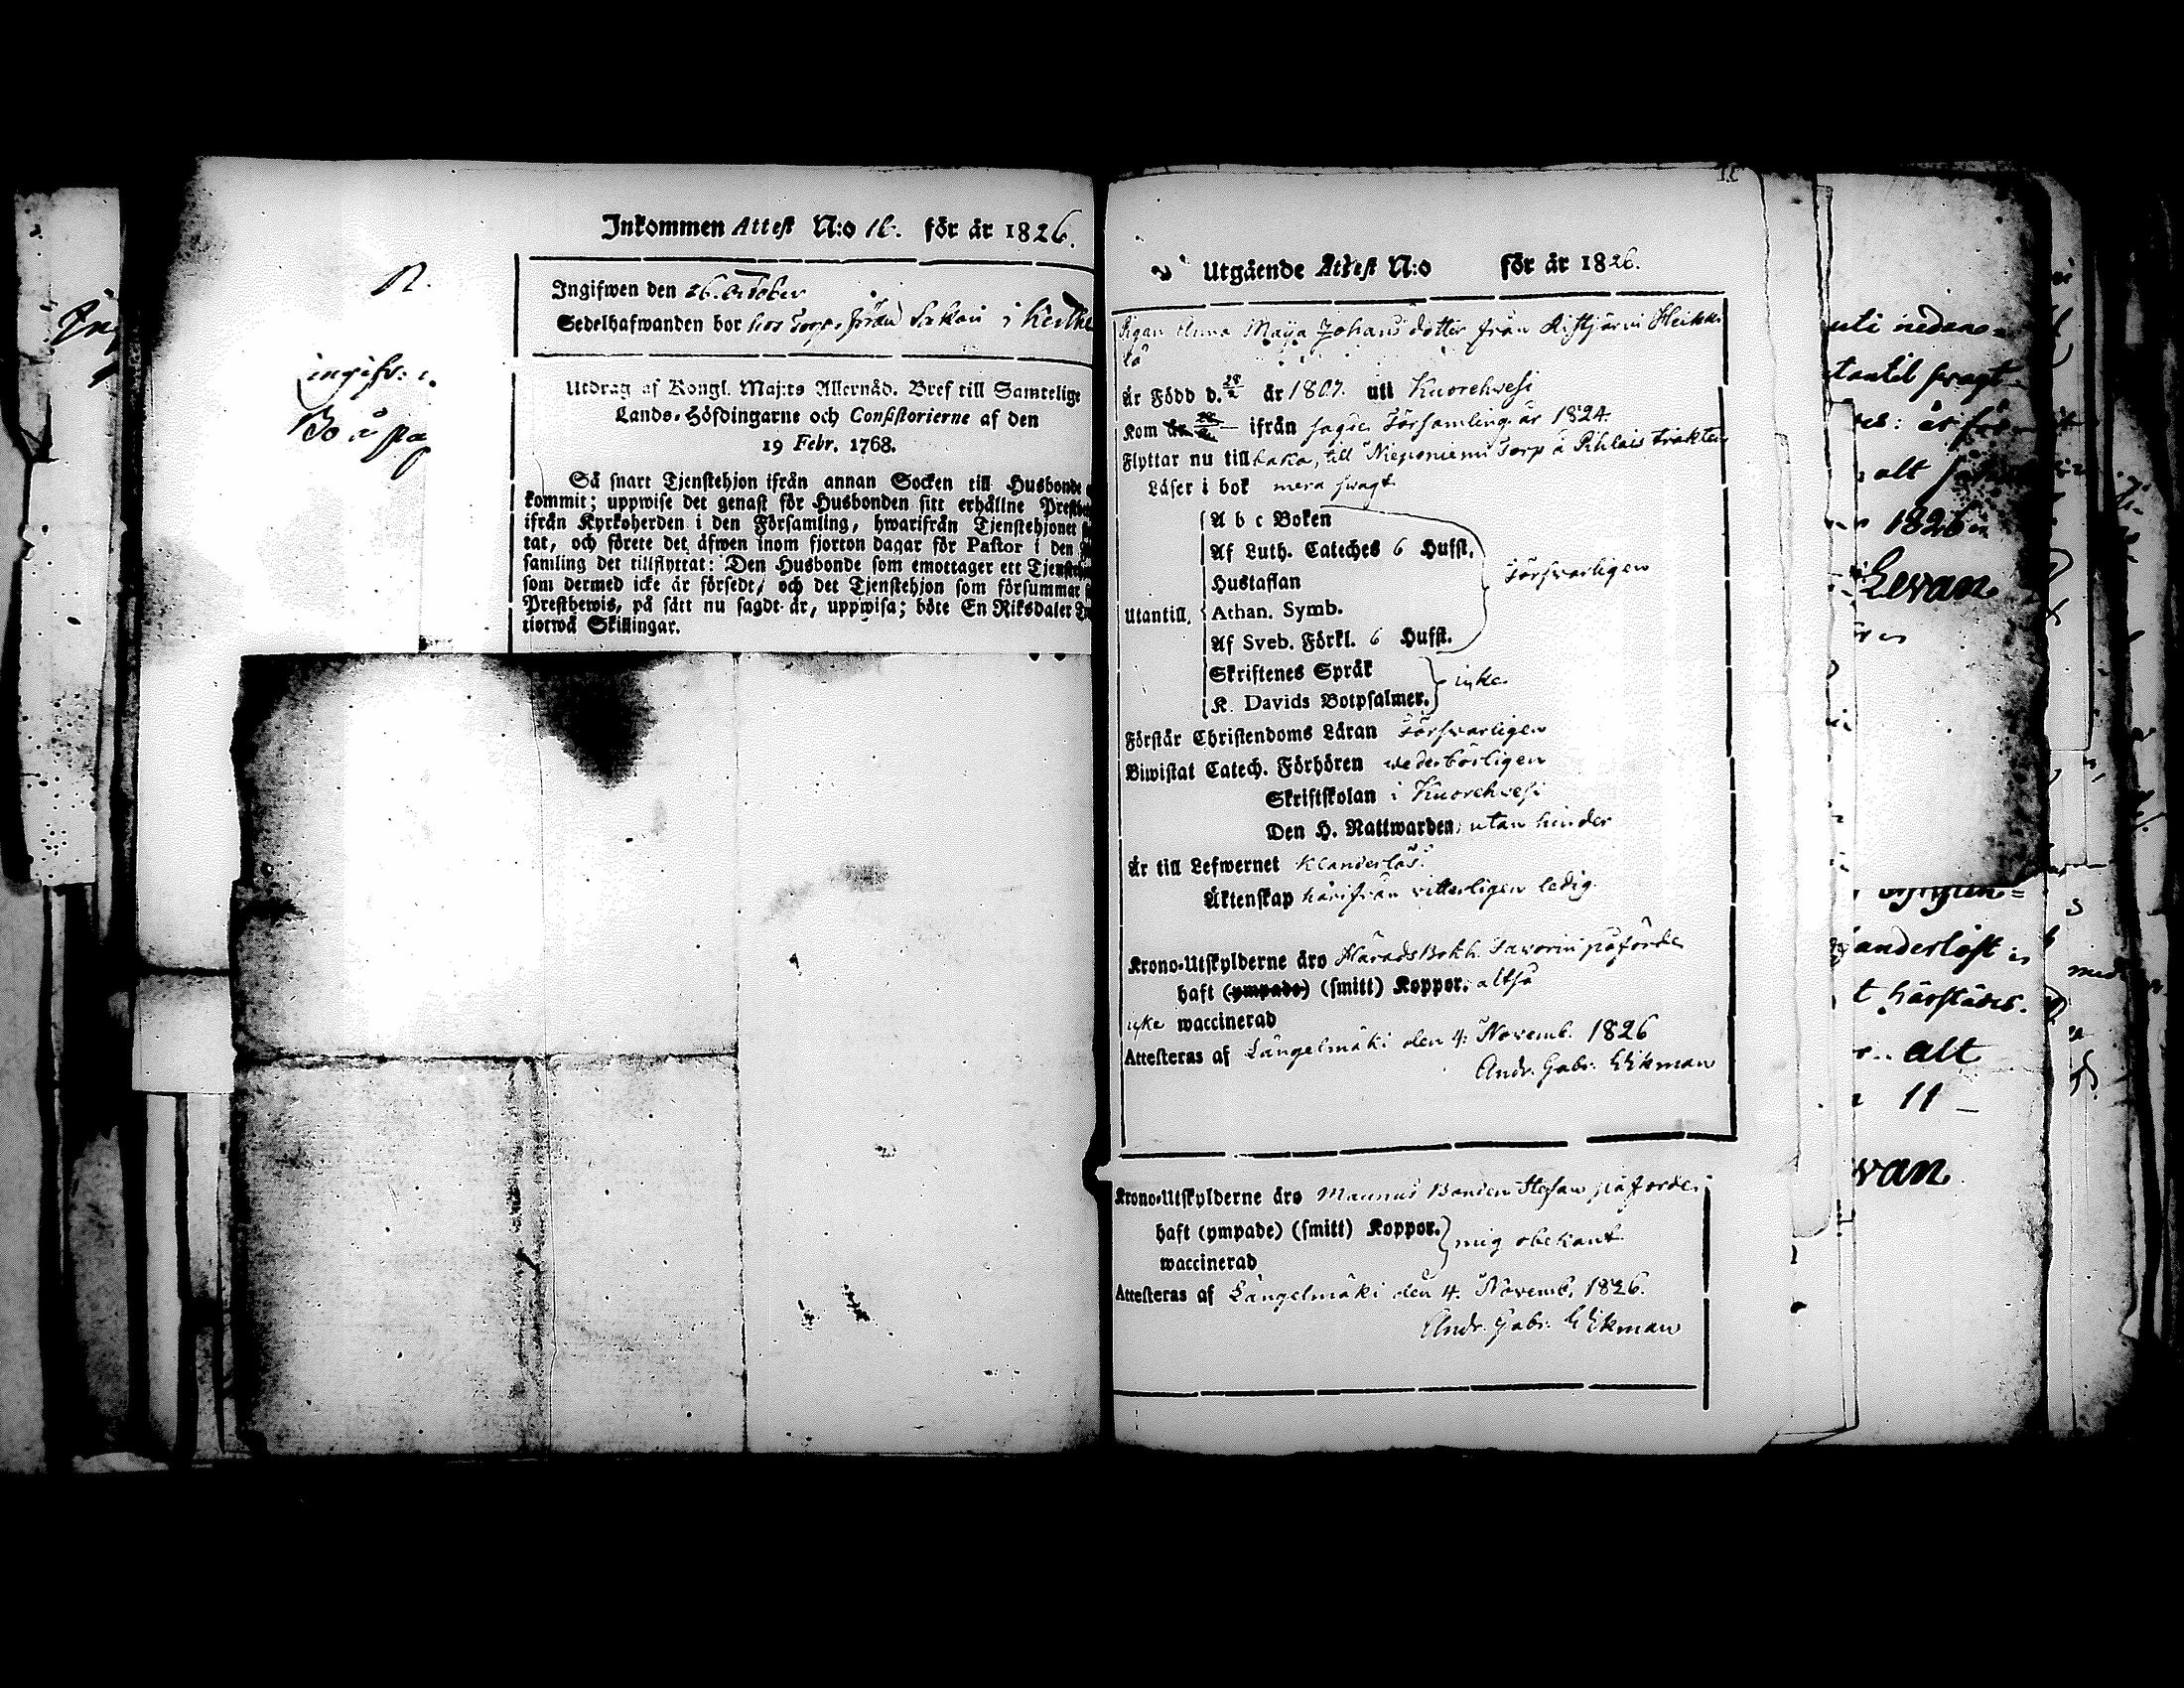 Inkommen Attest N:o 16. för år 1826.
Ingifwen den 26. October
Sedelhafwanden bor hos Torp. Johan i
N.
ingifv:
Bo å
Utdrag af Kongl. Maj:ts Allernåd. Bref till Samtelige
Lands-Höfdingarne och Consistorierne af den
19 Febr. 1768.
Så snart Tjenstehjon ifrån annan Socken till Husbonde
kommit; uppwise det genast för Husbonden sitt erhållne
ifrån Kyrkoherden i den Församling, hwarifrån Tjenstehjonet
tat, och förete det äfwen inom fjorton dagar för Pastor i den
samling det tillflyttat: Den Husbonde som emottager ett
som dermed icke är försedt, och det Tjenstehjon som försummar
Prestbewis, på sätt nu sagdt är, uppwisa; böte En Riksdaler
tiotwå Skillingar.
Utgående Attest N:o för år 1826.
Pigan Anna Maija Johans dotter från Ristjärvi Heikki
lä
Är Född d. 28/2 år 1807. uti Kuorehwesi
Kom ifrån sagde Församling år 1824.
Flyttar nu tillbaka, till Nieponiemi Torp å Pihlais trakten
Läser i bok mera swagt
Utantill,
A b c Boken
Af Luth. Cateches 6 Hufst.
Hustaflan
Athan. Symb.
Af Sveb. Förkl. 6 Hufst.
Förswarligen
Skriftenes Språk
K. Davids Botpsalmer.
icke
Förstår Christendoms Läran Förswarligen
Biwistat Catech. Förhören wederbörligen
Skriftskolan i Kuorehwesi
Den H. Nattwarden utan hinder
Är till Lefwernet Klanderlös.
Äktenskap härifrån vitterligen ledig.
Krono-Utskylderne äro HäradsBokh. Taworin påförde
haft (ympade) (smitt) Koppor. altså
icke waccinerad
Attesteras af Längelmäki den 4: Novemb. 1826
Andr. Gabr. Wikman
Krono-Utskylderne äro Maunus Bonden Stefan påförde
haft (ympade) (smitt) Koppor.
waccinerad
mig obekant
Attesteras af Längelmäki den 4. Novemb. 1826.
Andr. Gabr. Wikman
uti nedan-
utantil swagt
alt
1826
Levan
anderlöst
t härstädes.
alt
11
van